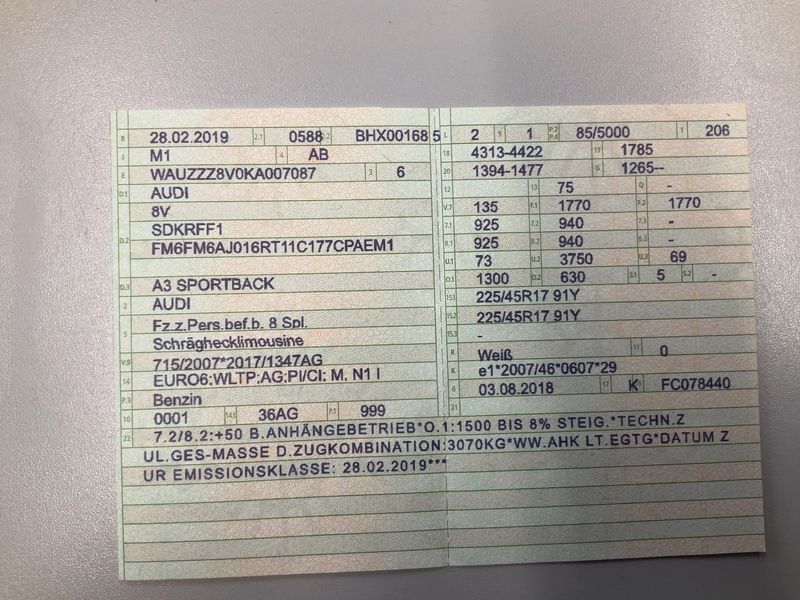 B 28.02.2019 2.1 0588 2.2 BHX00168 5
J M1 4 AB
E WAUZZZ8V0KA007087 3 6
D.1 AUDI
8V
D.2 SDKRFF1
FM6FM6AJ016RT11C177CPAEM1
D.3 A3 SPORTBACK
2 AUDI
5 Fz.z.Pers.bef.b. 8 Spl.
Schräghecklimousine
V.9 715/2007*2017/1347AG
14 EURO6:WLTP:AG:PI/CI: M. N1 I
P.3 Benzin
10 0001 14.1 36AG P.1 999
L 2 9 1 P.2 P.4 85/5000 T 206
18 4313-4422 19 1785
20 1394-1477 G 1265--
12 13 75 Q -
V.7 135 F.1 1770 F.2 1770
7.1 925 7.2 940 7.3 -
8.1 925 8.2 940 8.3 -
U.1 73 U.2 3750 U.3 69
O.1 1300 O.2 630 S.1 5 S.2 -
15.1 225/45R17 91Y
15.2 225/45R17 91Y
15.3 -
R Weiß 11 0
K e1*2007/46*0607*29
6 03.08.2018 17 K 16 FC078440
21
22 7.2/8.2:+50 B.ANHÄNGEBETRIEB*O.1:1500 BIS 8% STEIG.*TECHN.Z
UL.GES-MASSE D.ZUGKOMBINATION:3070KG*WW.AHK LT.EGTG*DATUM Z
UR EMISSIONSKLASSE: 28.02.2019***